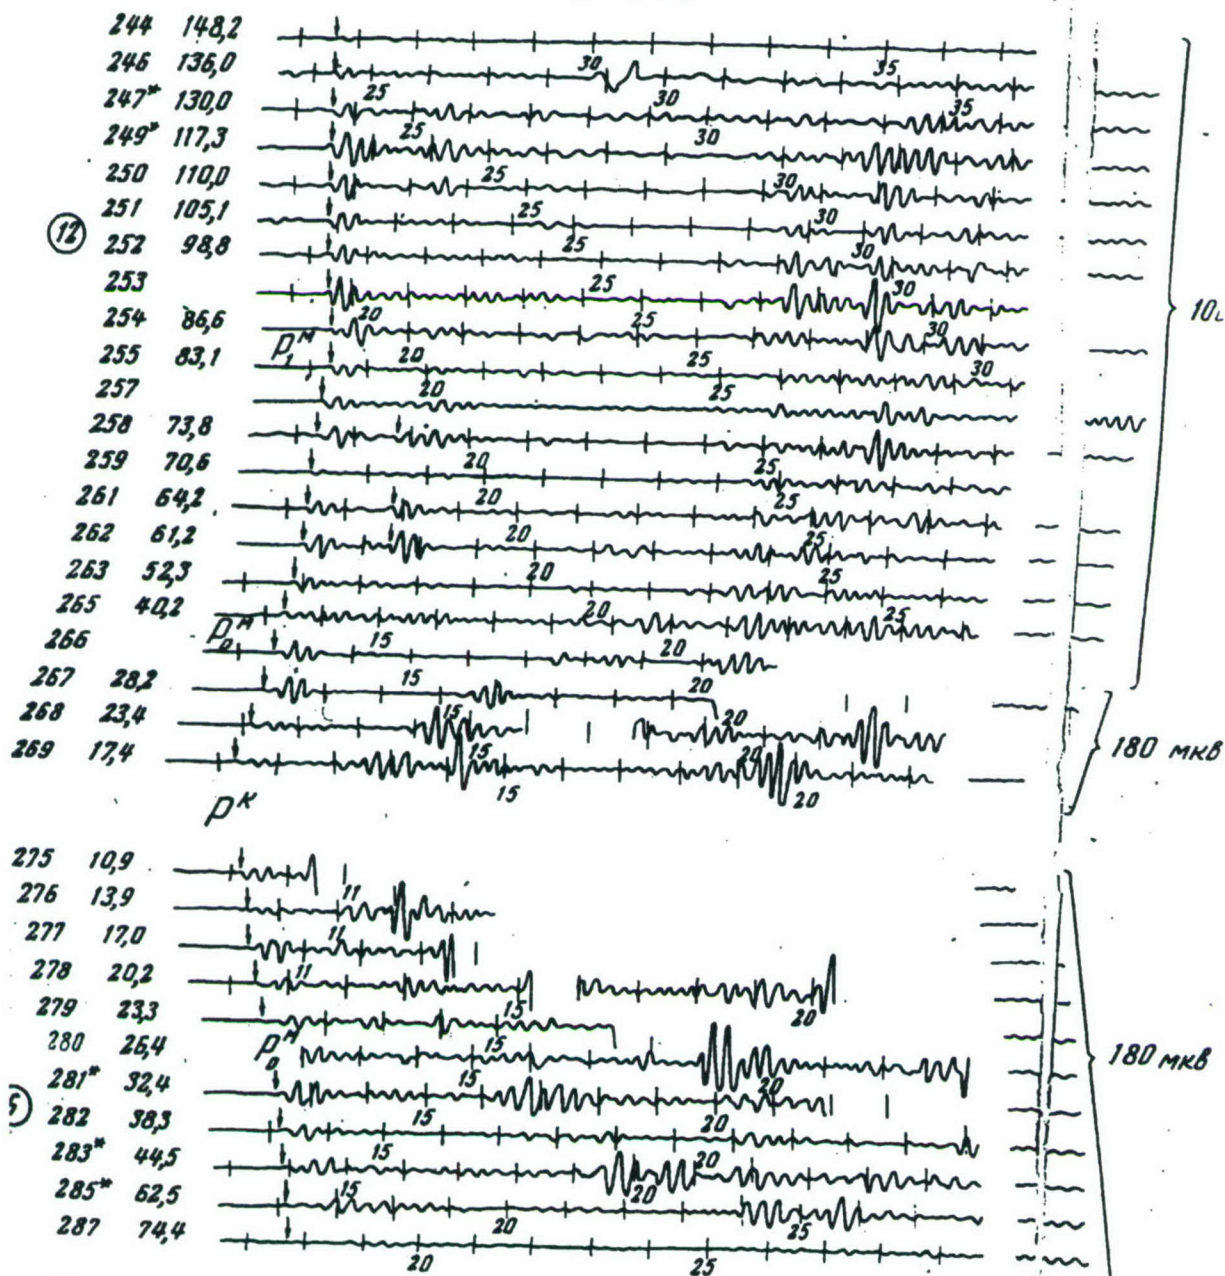 244 148,2
30 35
246 136,0
25 30 35
247* 130,0
25 30
249* 117,3
25 30
250 110,0
25 30
251 105,1
25 30
12
252 98,8
25 30
253
20 25 30
254 86,6
P₁ᴹ 20 25 30
255 83,1
20 25
257
258 73,8
20 25
259 70,6
20 25
261 64,2
20 25
262 61,2
20 25
263 52,3
20 25
265 40,2
P₀ᴹ 15 20
266
15 20
267 28,2
15 20
268 23,4
15 20
269 17,4
15 20
Pᴷ
180 мкв
275 10,9
11
276 13,9
11
277 17,0
11
278 20,2
15 20
279 23,3
P₀ᴹ 15
280 26,4
15 20
281* 32,4
15 20
282 38,3
15 20
283* 44,5
15 20
285* 62,5
20 25
287 74,4
20 25
180 мкв